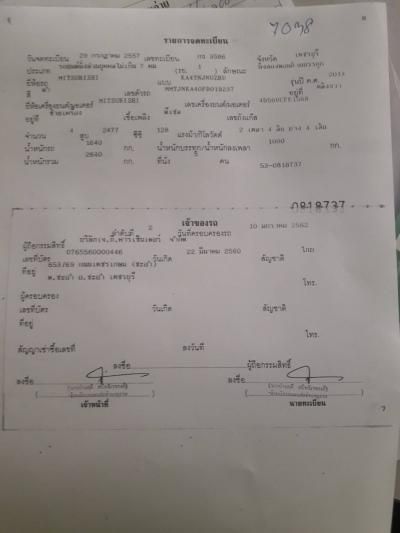 7038
รายการจดทะเบียน
วันจดทะเบียน 29 กรกฎาคม 2557 เลขทะเบียน กง 3986 จังหวัด เพชรบุรี
ประเภท รถยนต์นั่งส่วนบุคคลไม่เกิน 7 คน (รย. 1 ) ลักษณะ
ยี่ห้อรถ MITSUBISHI แบบ KA4TNJNUZRU รุ่นปี ค.ศ. 2014
สี เลขตัวรถ MMTJNKA40FD019237 อยู่ที่
ยี่ห้อเครื่องยนต์/มอเตอร์ MITSUBISHI เลขเครื่องยนต์/มอเตอร์
อยู่ที่ เชื้อเพลิง ดีเซล เลขถังแก๊ส
จำนวน 4 สูบ 2477 ซีซี 128 แรงม้า/กิโลวัตต์ 2 เพลา 4 ล้อ ยาง 4 เส้น
น้ำหนักรถ 1840 กก. น้ำหนักบรรทุก/น้ำหนักลงเพลา 1000 กก.
น้ำหนักรวม 2840 กก. ที่นั่ง คน 53-0818737
0818737
เจ้าของรถ
ลำดับที่ 2 วันที่ครอบครองรถ 10 มกราคม 2562
ผู้ถือกรรมสิทธิ์
เลขที่บัตร 0765560000446 วันเกิด 22 มีนาคม 2560 สัญชาติ ไทย
ที่อยู่ 653/69 ถนนเพชรเกษม (ชะอำ)
ต.ชะอำ อ.ชะอำ เพชรบุรี โทร.
ผู้ครอบครอง
เลขที่บัตร วันเกิด สัญชาติ
ที่อยู่
โทร.
สัญญาเช่าซื้อเลขที่ ลงวันที่
ลงชื่อ ผู้ถือกรรมสิทธิ์
ลงชื่อ ลงชื่อ
เจ้าหน้าที่ นายทะเบียน
7